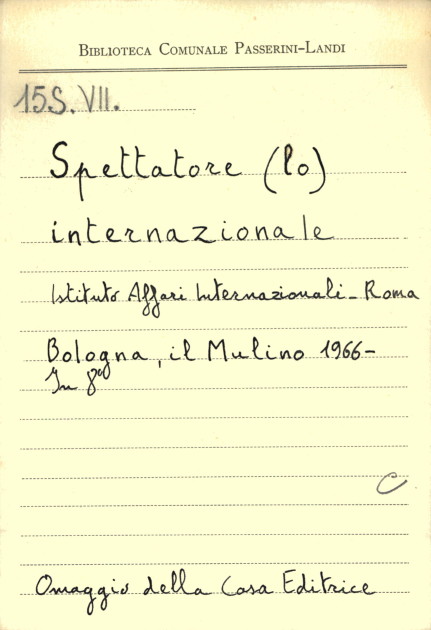 BIBLIOTECA COMUNALE PASSERINI-LANDI
15S.VII.
Spettatore (lo)
internazionale
Istituto Affari Internazionali - Roma
Bologna, il Mulino 1966-
In 8º
C
Omaggio della Casa Editrice